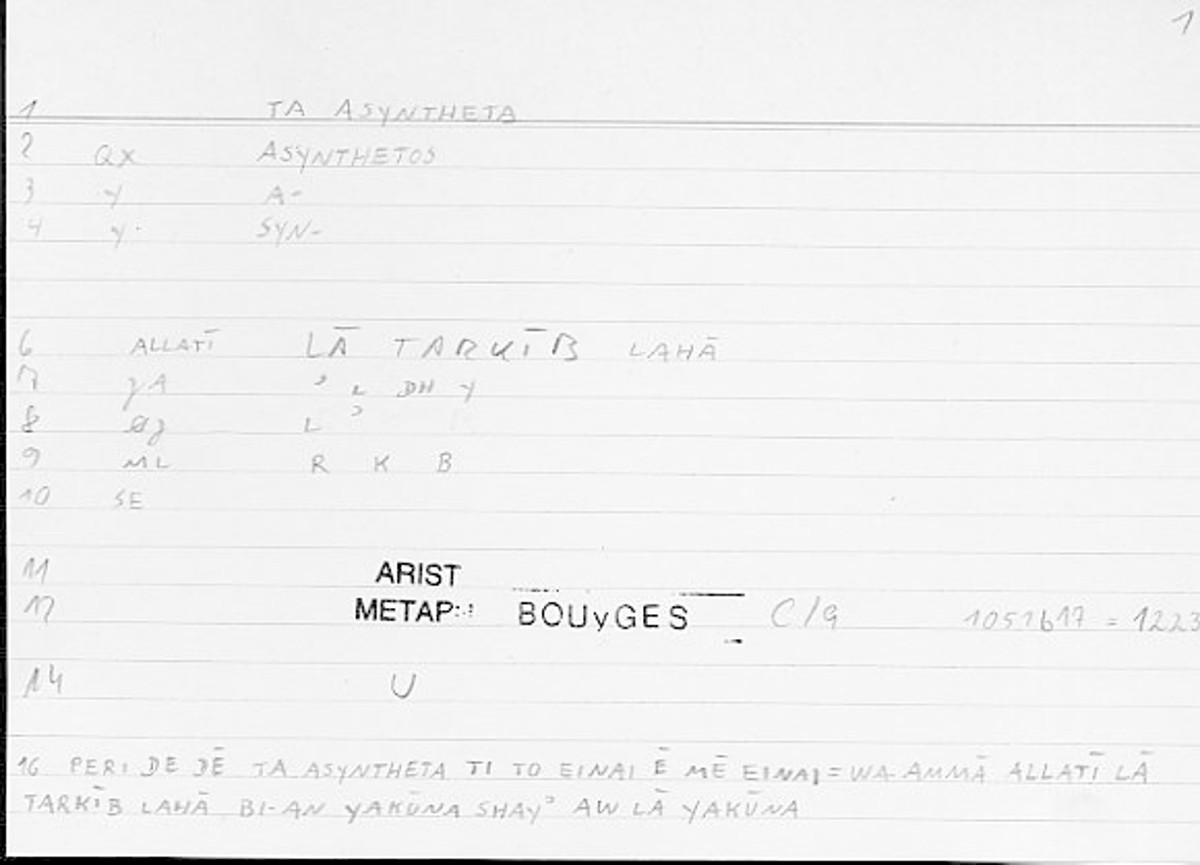 1
1 TA ASYNTHETA
2 QX ASYNTHETOS
3 Y A-
4 Y. SYN-
6 ALLATĪ LĀ TARKĪB LAHĀ
7 ʾ L DH Y
8 L ʾ
9 ML R K B
10 SE
11 ARIST
12 METAP BOUyGES C/G 1051b17 = 1223
14 U
16 PERI DE DĒ TA ASYNTHETA TI TO EINAI Ē MĒ EINAI = WA-AMMĀ ALLATĪ LĀ
TARKĪB LAHĀ BI-AN YAKŪNA SHAYʾ AW LĀ YAKŪNA